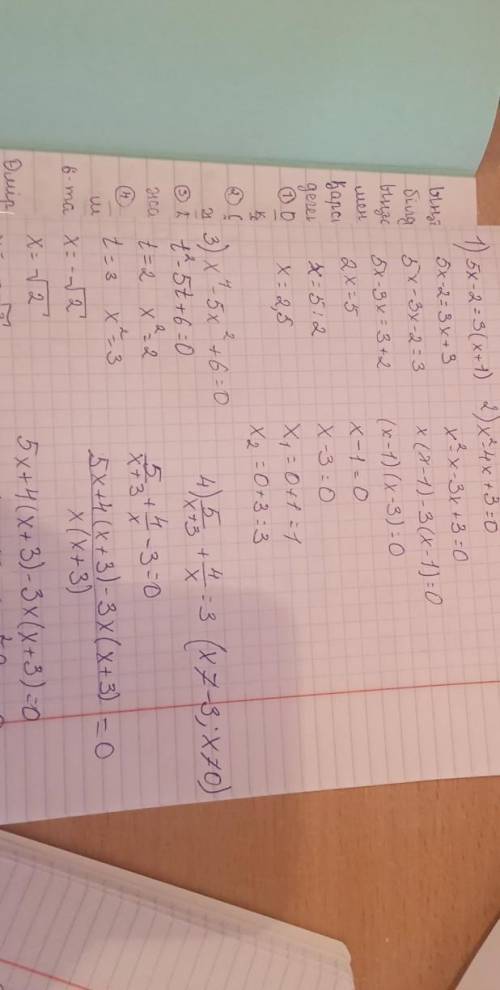 1) 5x-2=3(x+1)
5x-2=3x+3
5x-3x-2=3
5x-3x=3+2
2x=5
x=5:2
x=2,5
2) x²-4x+3=0
x²-x-3x+3=0
x(x-1)-3(x-1)=0
(x-1)(x-3)=0
x-1=0
x-3=0
x₁=0+1=1
x₂=0+3=3
3) x⁴-5x²+6=0
t²-5t+6=0
t=2 x²=2
t=3 x²=3
x=-√2
x=√2
4) 5/(x+3) + 4/x = 3 (x≠-3; x≠0)
5/(x+3) + 4/x - 3 = 0
(5x+4(x+3)-3x(x+3))/(x(x+3)) = 0
5x+4(x+3)-3x(x+3)=0